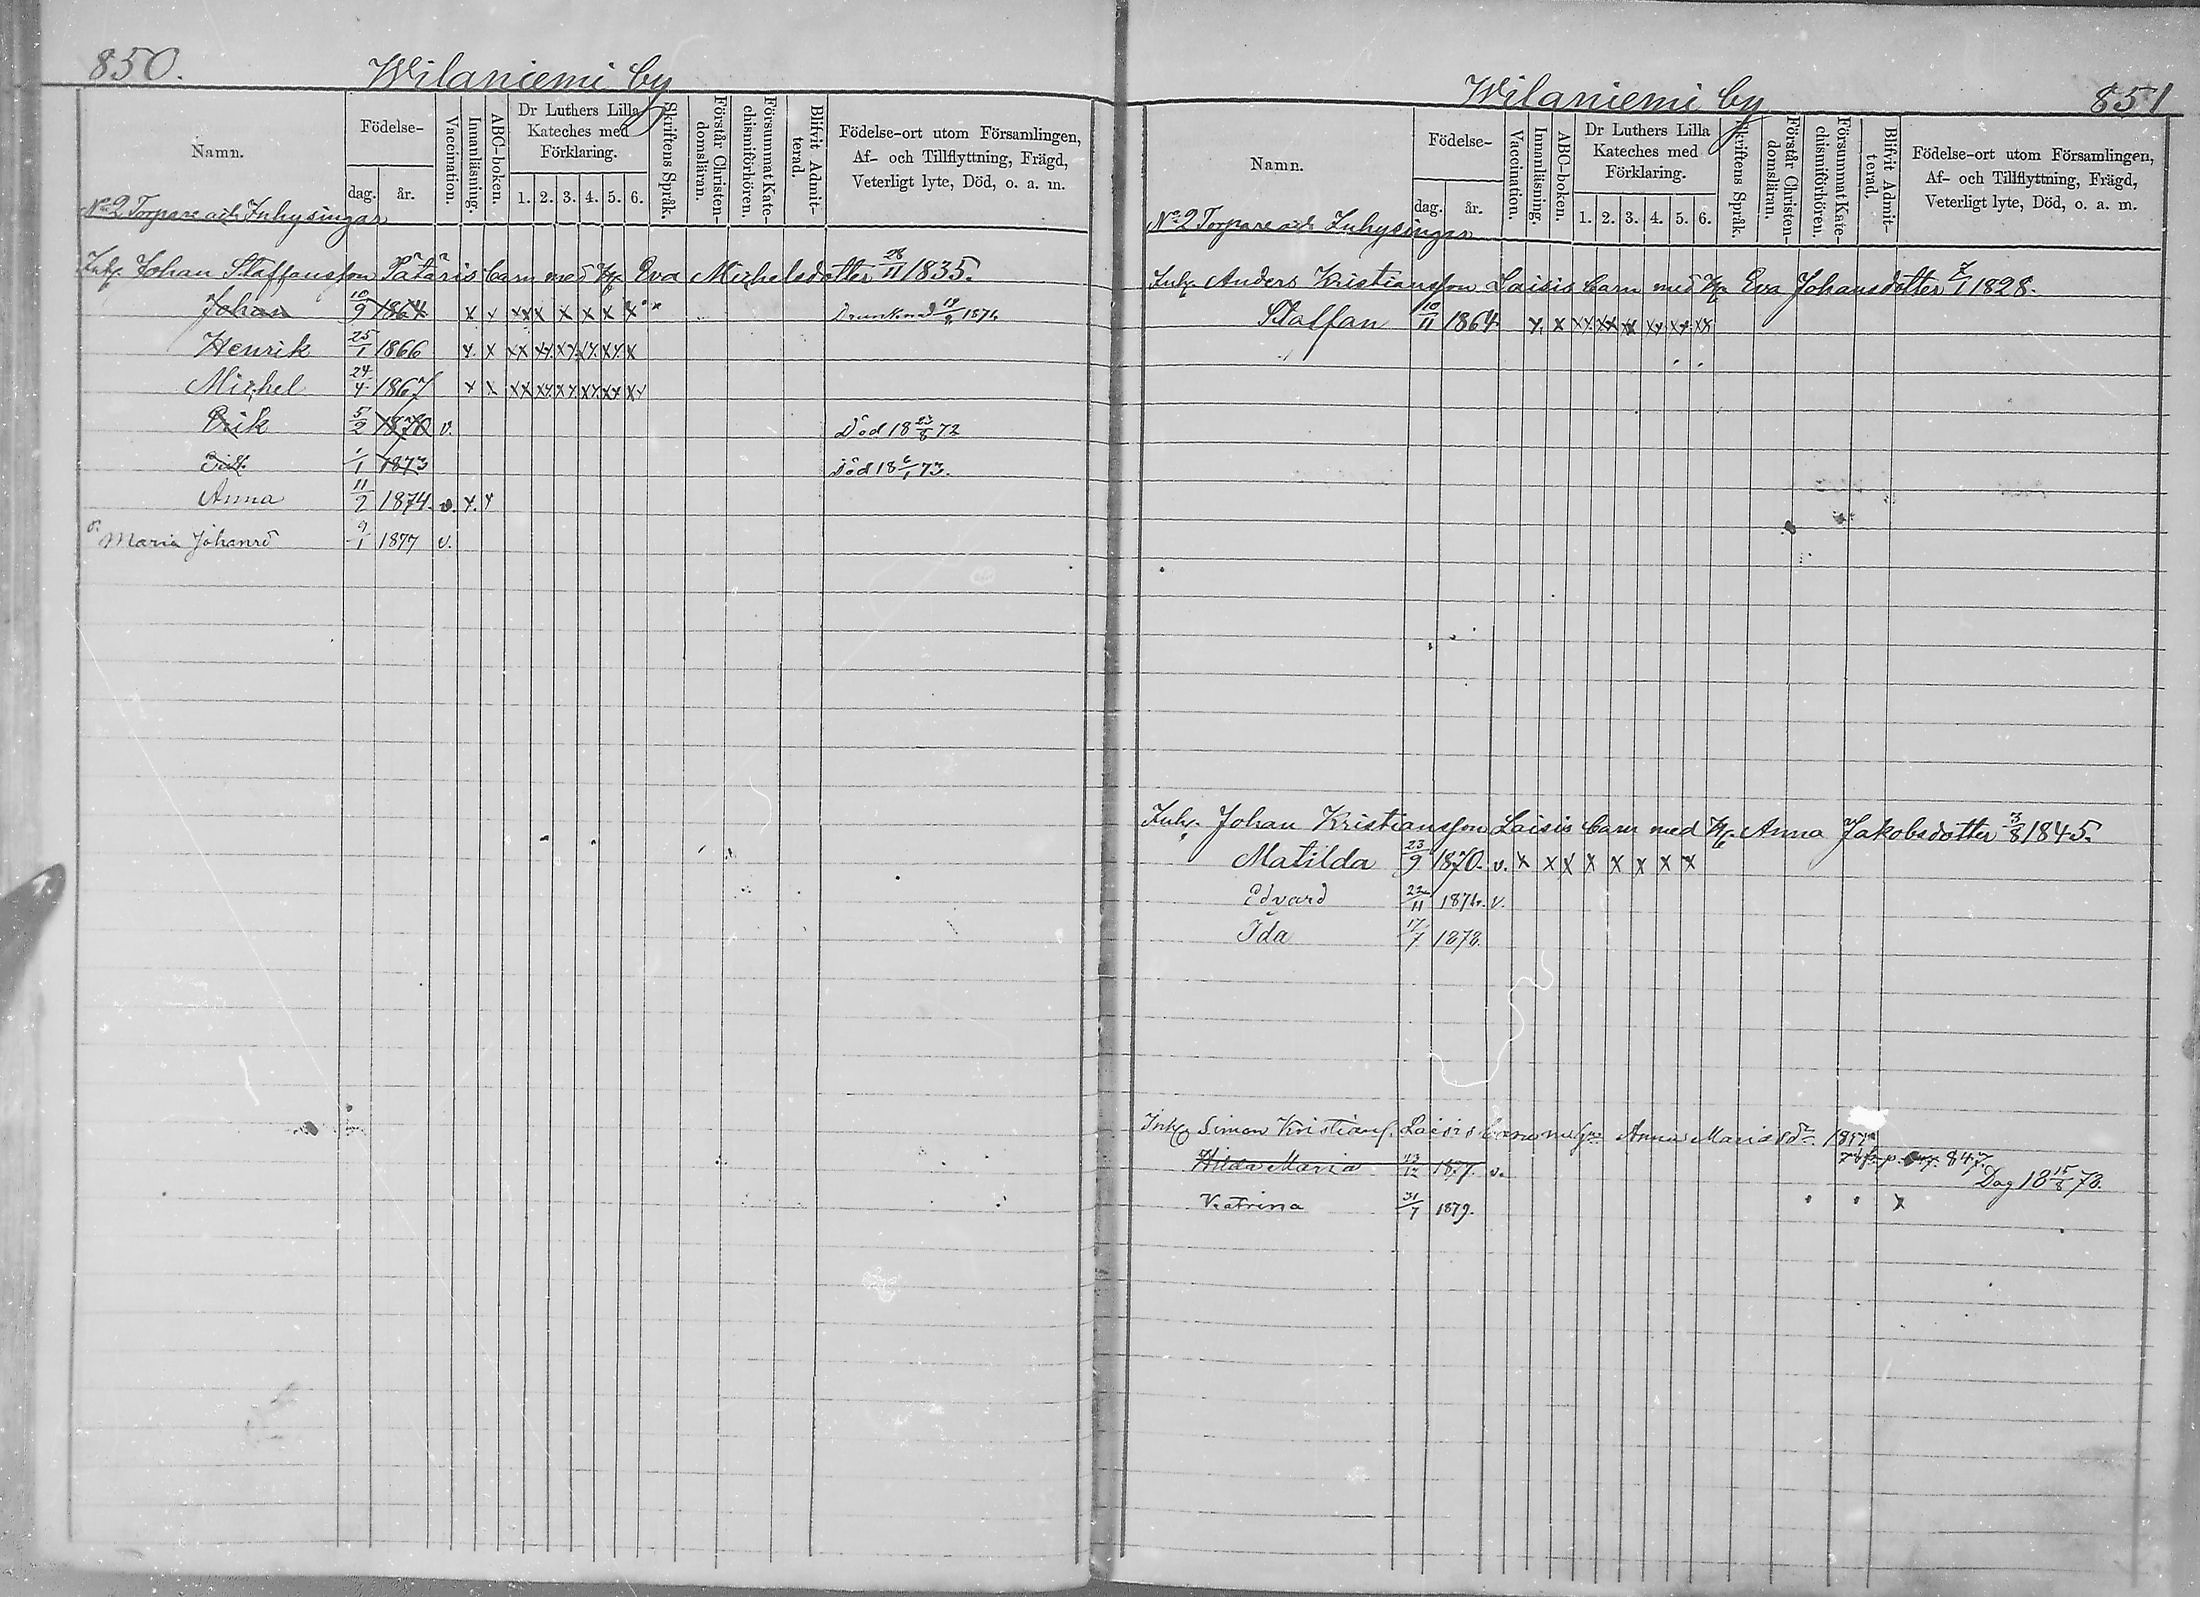 850.
Wilaniemi by
Namn.
Födelse-
dag. år.
Vaccination.
Innanläsning.
ABC-boken.
Dr Luthers Lilla
Kateches med
Förklaring.
1. 2. 3. 4. 5. 6.
Skriftens Språk.
Förstår Christen-
domsläran.
Försummat Kate-
chismiförhören.
Blifvit Admit-
terad.
Födelse-ort utom Församlingen,
Af- och Tillflyttning, Frägd,
Veterligt lyte, Död, o. a. m.
No 2 Torpare och Inhysingar
Inh. Johan Staffansson Pätäris barn med H. Eva Michelsdotter 28/11 1835.
Johan 10/9 1864 x x xx x x x x x
Henrik 25/1 1866 x x xx xx xx xx xx x
Michel 24/4 1867 x x xx xx xx xx xx xx
Erik 5/2 1870 v. Död 18 23/8 72
1/1 1873 Död 18 6/1 73.
Anna 11/2 1874. v. x x
d. Maria Johansd 9/1 1877 v.
Wilaniemi by
851
Namn.
Födelse-
dag. år.
Vaccination.
Innanläsning.
ABC-boken.
Dr Luthers Lilla
Kateches med
Förklaring.
1. 2. 3. 4. 5. 6.
Skriftens Språk.
Förstår Christen-
domsläran.
Försummat Kate-
chismiförhören.
Blifvit Admit-
terad.
Födelse-ort utom Församlingen,
Af- och Tillflyttning, Frägd,
Veterligt lyte, Död, o. a. m.
No 2 Torpare och Inhysingar
Inh. Anders Kristiansson Laisis barn med H. Eva Johansdotter 7/1 1828.
Staffan 10/11 1864 x x xx xx xx xx xx xx
Inh. Johan Kristiansson Laisis barn med H. Anna Jakobsdotter 3/8 1845.
Matilda 23/9 1870. v. x x x x x x x x
Edvard 22/11 1876. v.
Ida 17/7 1878.
Inh. Simon Kristians. Laisis barn med Anna Mariasdr
Hilda Maria v. p. 847. 18 15/8 78.
Katrina 31/7 1879. x